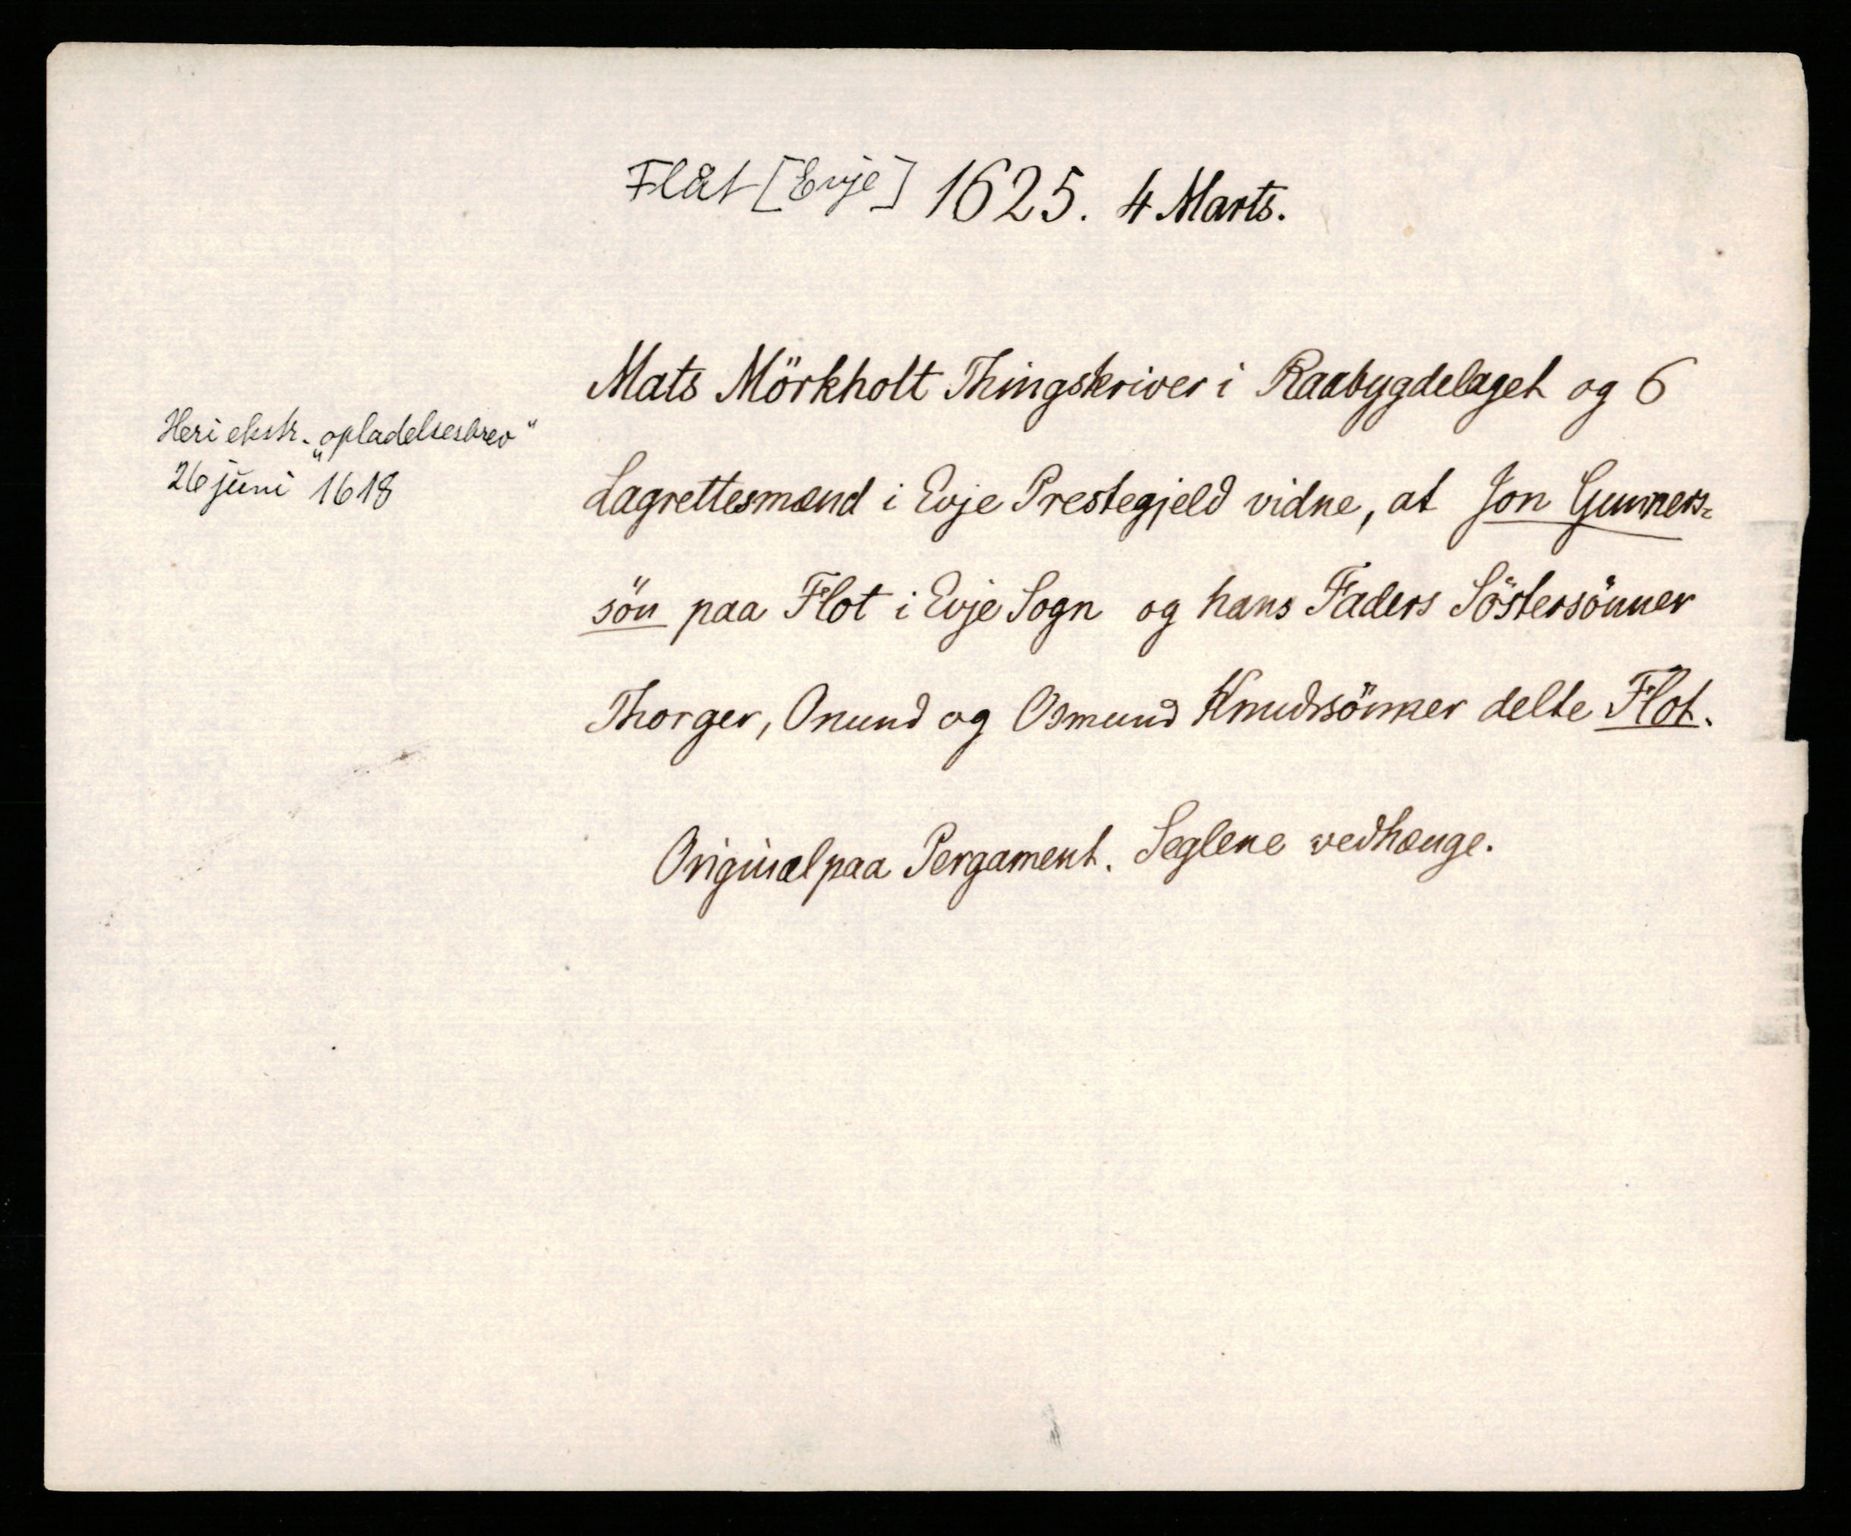 Flåt [Evje] 1625. 4 Marts.
Heri ekstr. „opladelsesbrev“
26 juni 1618
Mats Mörkholt Thingskriver i Raabygdelaget og 6
Lagrettesmænd i Evje Prestegjeld vidne, at Jon Gunners-
sön paa Flot i Evje Sogn og hans Faders Söstersönner
Thorger, Onund og Osmund Knudssönner delte Flot.
Original paa Pergament. Seglene vedhænge.